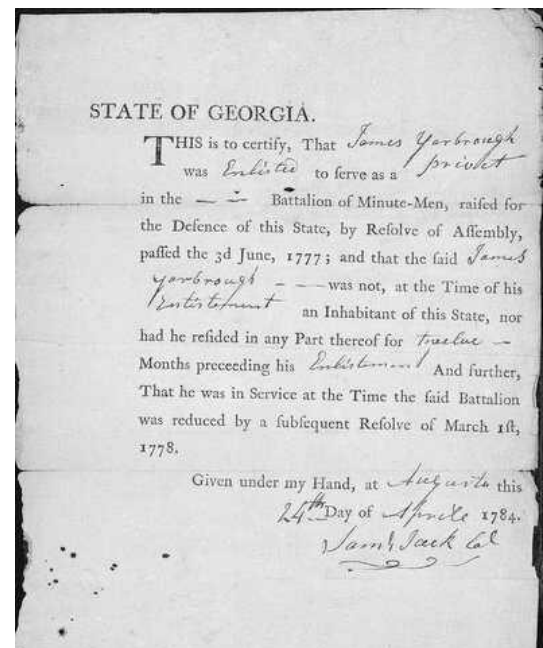 STATE OF GEORGIA.
THIS is to certify, That James Yarbrough
was Enlisted to ſerve as a privat
in the — — Battalion of Minute-Men, raiſed for
the Defence of this State, by Reſolve of Aſſembly,
paſſed the 3d June, 1777; and that the ſaid James
Yarbrough - - — was not, at the Time of his
Entistement an Inhabitant of this State, nor
had he reſided in any Part thereof for twelve —
Months preceeding his Enlistment And further,
That he was in Service at the Time the ſaid Battalion
was reduced by a ſubſequent Reſolve of March 1ſt,
1778.
Given under my Hand, at Augusta this
24th Day of Aprile 1784.
Saml Jack Col